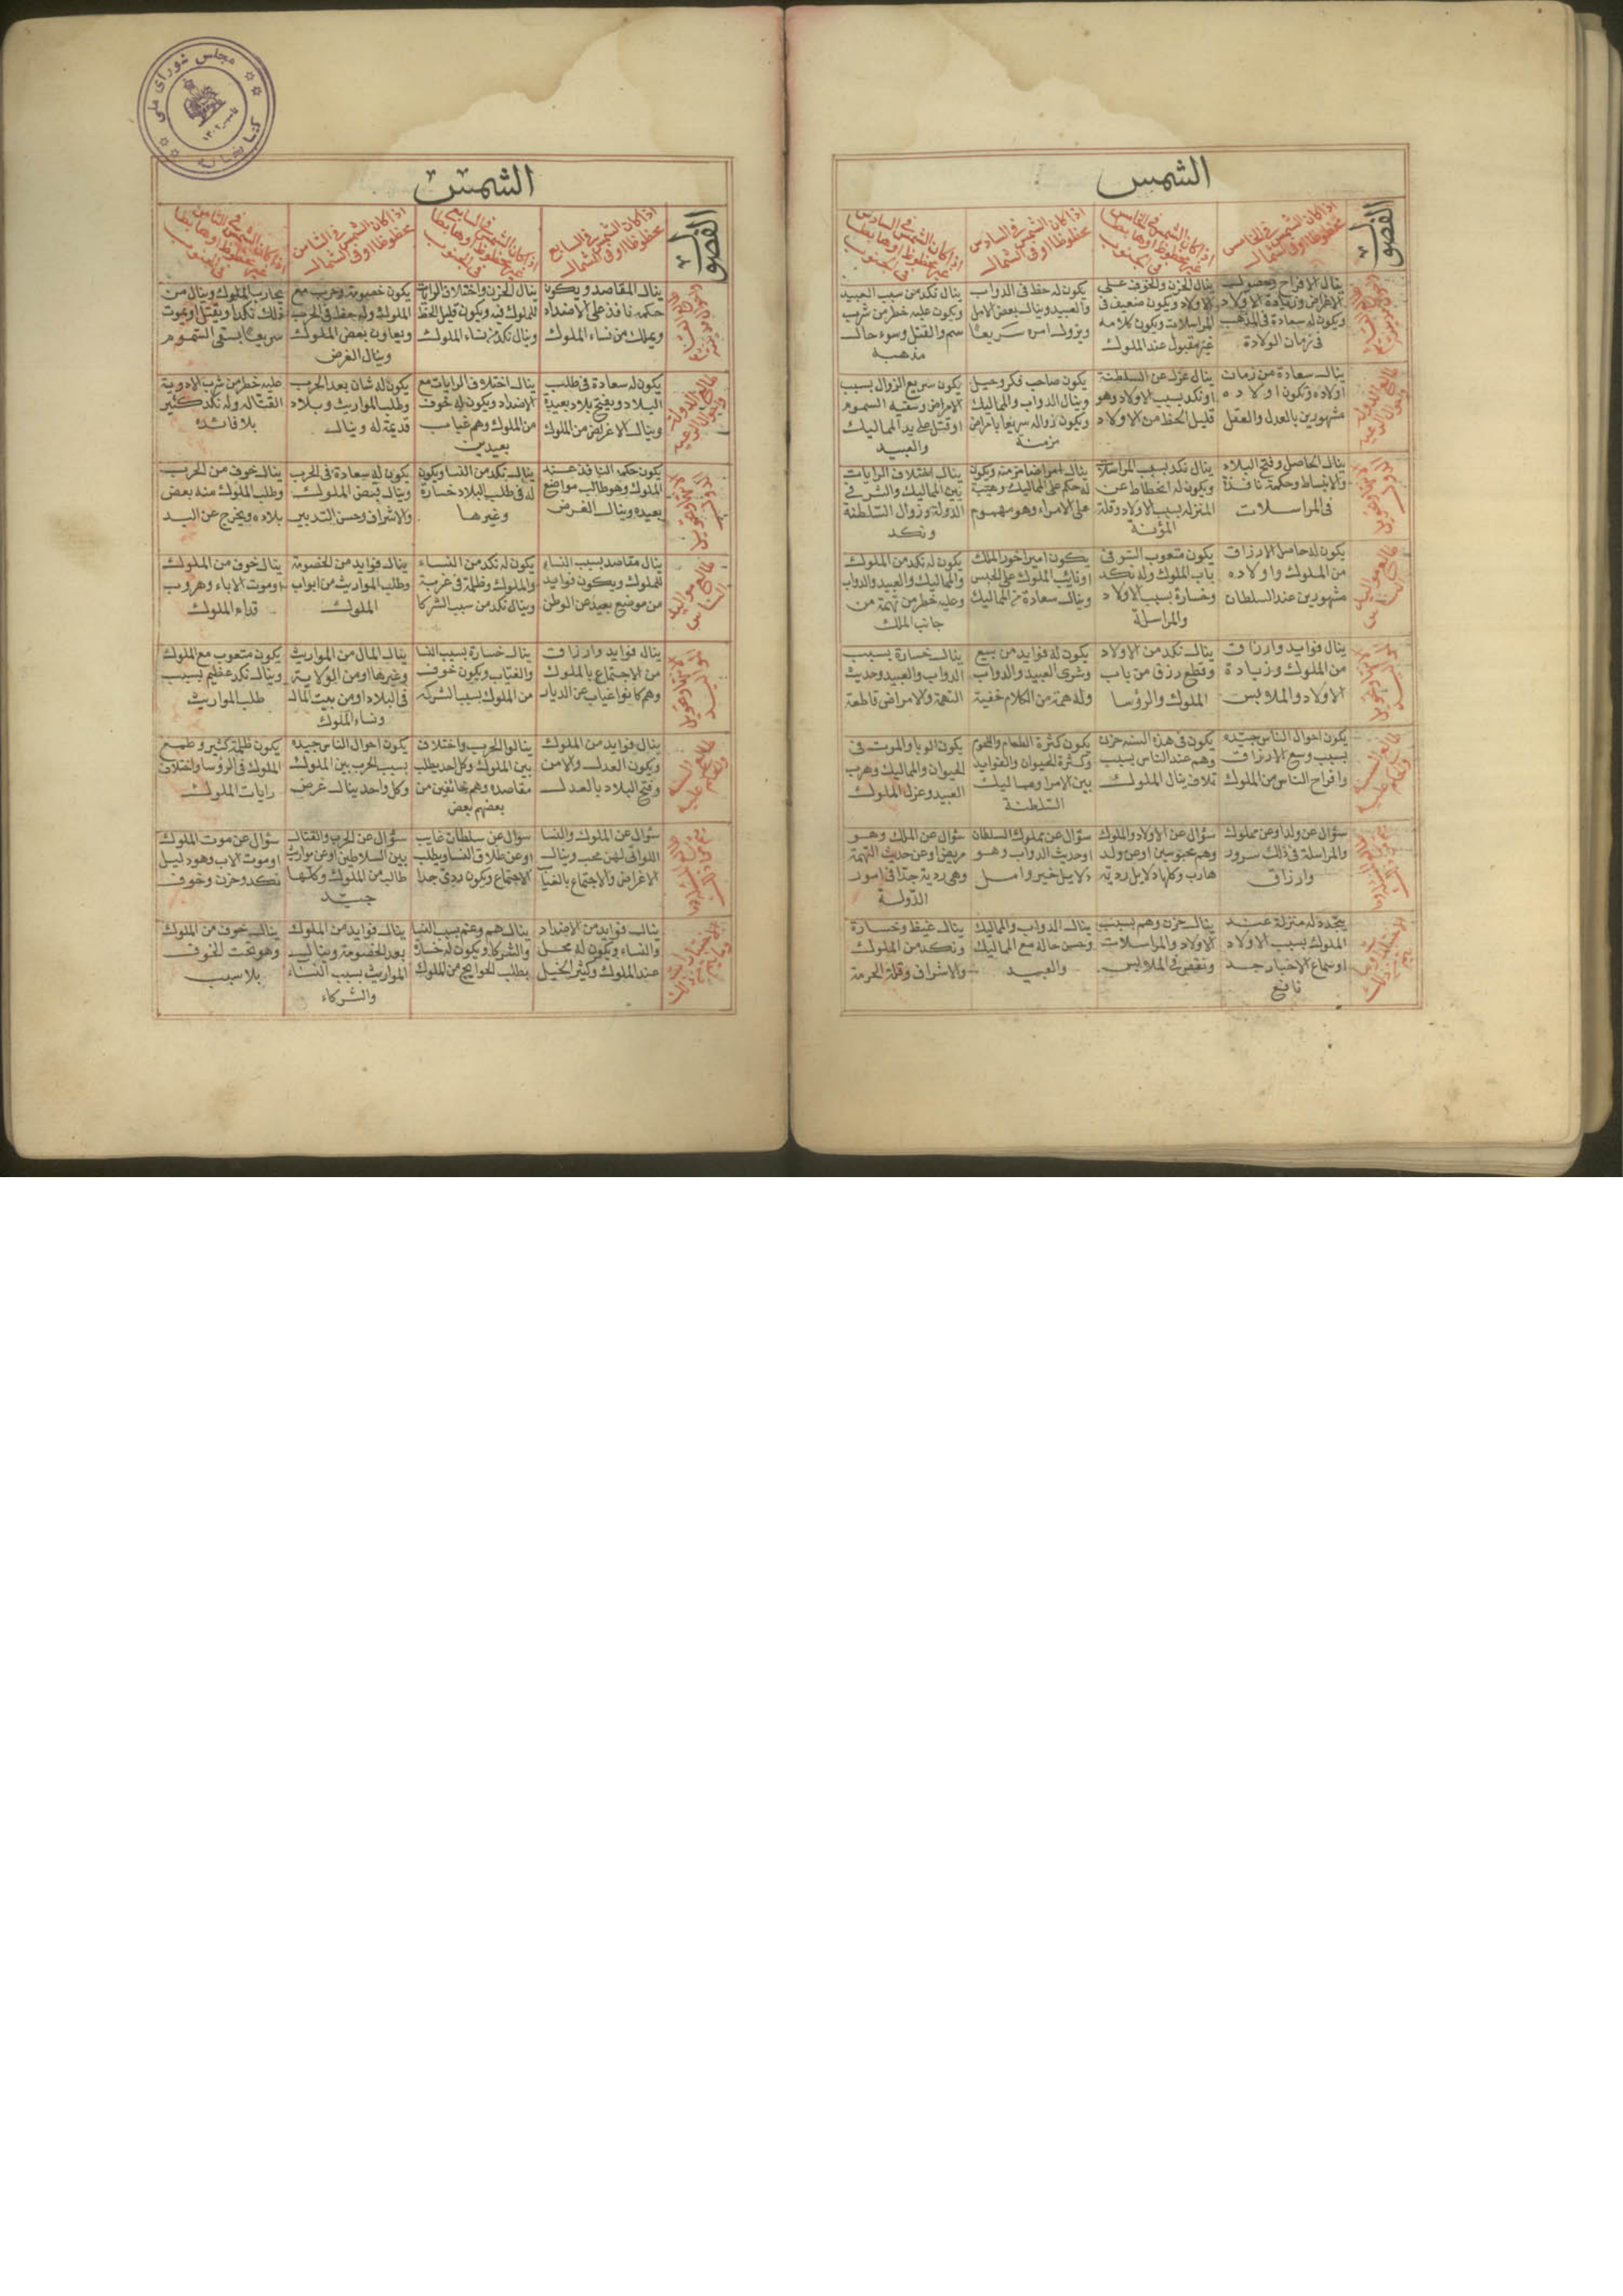 الشمس
الفصول
اذا كان الشمس في الخامس
محظوظا او في الشمال
اذا كان الشمس في الخامس
غير محظوظ او هابطا
في الجنوب
اذا كان الشمس في السادس
محظوظا او في الشمال
اذا كان الشمس في السادس
غير محظوظ او هابطا
في الجنوب
ينال الافراح وحصول
الاغراض وزيادة الاولاد
ويكون له سعادة في المذهب
في زمان الولادة
ينال الحزن والخوف على
الاولاد ويكون ضعيف في
المراسلات ويكون كلامه
غير مقبول عند الملوك
يكون له حظ في الدواب
والعبيد وينال بعض الامل
ويزول امره سريعًا
ينال نكد من سبب العبيد
ويكون عليه خطر من شرب
سم والقتل وسوء حال
مذهبه
ينال سعادة من زمان
اولاده وتكون اولاده
مشهورين بالعدل والعقل
ينال عزل عن السلطنة
او نكد بسبب الاولاد وهو
قليل الحظ من الاولاد
يكون صاحب فكر وحيل
وينال الدواب والمماليك
ويكون زواله سريعا بامراض
مزمنة
يكون سريع الزوال بسبب
الامراض وسقيه السموم
او قتل على يد المماليك
والعبيد
ينال الحاصل وفتح البلاد
والانبساط وحكمه نافذة
في المراسلات
ينال نكد بسبب المراسلات
ويكون له انحطاط عن
المنزله بسبب الاولاد وقلة
المؤنة
ينال امراضا مزمنه ويكون
له حكم على المماليك وهيبة
على الامراء وهو مهموم
ينال اختلاف الرايات
بين المماليك والشر في
الدولة وزوال السلطنة
ونكد
يكون له حاصل الارزاق
من الملوك واولاده
مشهورين عند السلطان
يكون متعوب السر في
باب الملوك وله نكد
وخسارة بسبب الاولاد
والمراسلة
يكون امير اخور الملك
او نائب الملوك على الحبس
وينال سعادة من المماليك
يكون له نكد من الملوك
والمماليك والعبيد والدواب
وعليه خطر من تهمة من
جانب الملك
ينال فوايد وارزاق
من الملوك وزيادة
الاولاد والملابس
ينال نكد من الاولاد
وقطع رزق من باب
الملوك والرؤسا
يكون له فوايد من بيع
وشرى العبيد والدواب
وله همة من الكلام خفية
ينال خسارة بسبب
الدواب والعبيد وحديث
التهمة والامراض قاطعة
يكون احوال الناس جيده
بسبب وسع الارزاق
وافراح الناس من الملوك
يكون في هذه السنه حزن
وهم عند الناس بسبب
تلاف ينال الملوك
يكون كثرة الطعام واللحوم
وكثرة الحيوان والفوايد
بين الامرا ومماليك
السلطنة
يكون الوبا والموت في
الحيوان والمماليك وهرب
العبيد وعزل الملوك
سؤال عن ولد او عن مملوك
والمراسلة في ذلك سرور
وارزاق
سؤال عن الاولاد والملوك
وهم محبوسين او عن ولد
هارب وكلها دلايل ردية
سؤال عن مملوك السلطان
او حديث الدواب وهو
دلايل خير وامل
سؤال عن الملك وهو
مريض او عن حديث التهمة
وهي ردية جدا في امور
الدولة
يتجدد له منزلة عند
الملوك بسبب الاولاد
او سماع الاخبار جد
نافع
ينال حزن وهم بسبب
الاولاد والمراسلات
ونقص في الملابس
ينال الدواب والمماليك
وحسن حاله مع المماليك
والعبيد
ينال غيظ وخسارة
ونكد من الملوك
والاشراف وقلة الحرمة
الشمس
الفصول
اذا كان الشمس في السابع
محظوظا او في الشمال
اذا كان الشمس في السابع
غير محظوظ او هابطا
في الجنوب
اذا كان الشمس في الثامن
محظوظا او في الشمال
اذا كان الشمس في الثامن
غير محظوظ او هابطا
في الجنوب
ينال المقاصد ويكون
حكمه نافذ على الاضداد
ويملك من نساء الملوك
ينال الحزن واختلاف الرايات
للملوك فيه ويكون قليل الحظ
وينال نكد من نساء الملوك
يكون خصومة وحرب مع
الملوك وله حظ في الحرب
ويعاون بعض الملوك
وينال الغرض
يحارب الملوك وينال من
ذلك نكدا ويقتل او يموت
سريعًا بسقي السموم
يكون له سعادة في طلب
البلاد ويفتح بلاد بعيدة
وينال الاغراض من الملوك
ينال اختلاف الرايات مع
الاضداد ويكون له خوف
من الملوك وهم غياب
بعيدين
يكون له شان بعد الحرب
وطلب المواريث وبلاد
قديمة له وينال
عليه خطر من شرب الادوية
القتاله وله نكد كثير
بلا فائدة
يكون حكمه النافذ عند
الملوك وهو طالب مواضع
بعيده وينال الغرض
ينال نكد من النسا ويكون
له في طلب البلاد خسارة
وغيرها
يكون له سعادة في الحرب
وينال بعض الملوك
والاشراف وحسن التدبير
ينال خوف من الحرب
وطلب الملوك منه بعض
بلاده ويخرج عن اليد
ينال مقاصد بسبب النساء
للملوك ويكون فوايد
من موضع بعيد عن الوطن
يكون له نكد من النساء
والملوك وظلمة في غربة
وينال نكد من سبب الشركا
ينال فوايد من الخصومة
وطلب المواريث من ابواب
الملوك
ينال خوف من الملوك
او موت الاباء وهروب
قدام الملوك
ينال فوايد وارزاق
من الاجتماع بالملوك
وهم كانوا غياب عن الديار
ينال خسارة بسبب النسا
والغياب ويكون خوف
من الملوك بسبب الشركة
ينال المال من المواريث
وغيرها او من الولاية
في البلاد او من بيت المال
ونساء الملوك
يكون متعوب مع الملوك
وينال نكد عظيم بسبب
طلب المواريث
ينال فوايد من الملوك
ويكون العدل والامن
وفتح البلاد بالعدل
ينالوا الحرب واختلاف
بين الملوك وكل احد يطلب
مقاصده وهم خائفين من
بعضهم بعض
يكون احوال الناس جيده
بسبب الحرب بين الملوك
وكل واحد ينال غرض
يكون ظلمة كثير وطمع
الملوك في الرؤسا واختلاف
رايات الملوك
سؤال عن الملوك والنسا
اللواتي لهن محب وينال
الاغراض والاجتماع بالغياب
سؤال عن سلطان غايب
او عن طلاق النسا ويطلب
الاجتماع ويكون ردئ جدا
سؤال عن الحرب والقتال
بين السلاطين او عن مواريث
طالب من الملوك وكلها
جيد
سؤال عن موت الملوك
او موت الاب وهو دليل
نكد وحزن وخوف
ينال فوايد من الاضداد
والنساء ويكون له محل
عند الملوك وكثير الخيل
ينال هم وغم بسبب النسا
والشركا ويكون له خسارة
بطلب الحوايج من الملوك
ينال فوايد من الملوك
بعد الخصومة وينال
المواريث بسبب النساء
والشركاء
ينال خوف من الملوك
وهو تحت الخوف
بلا سبب
مجلس شورای ملی
کتابخانه